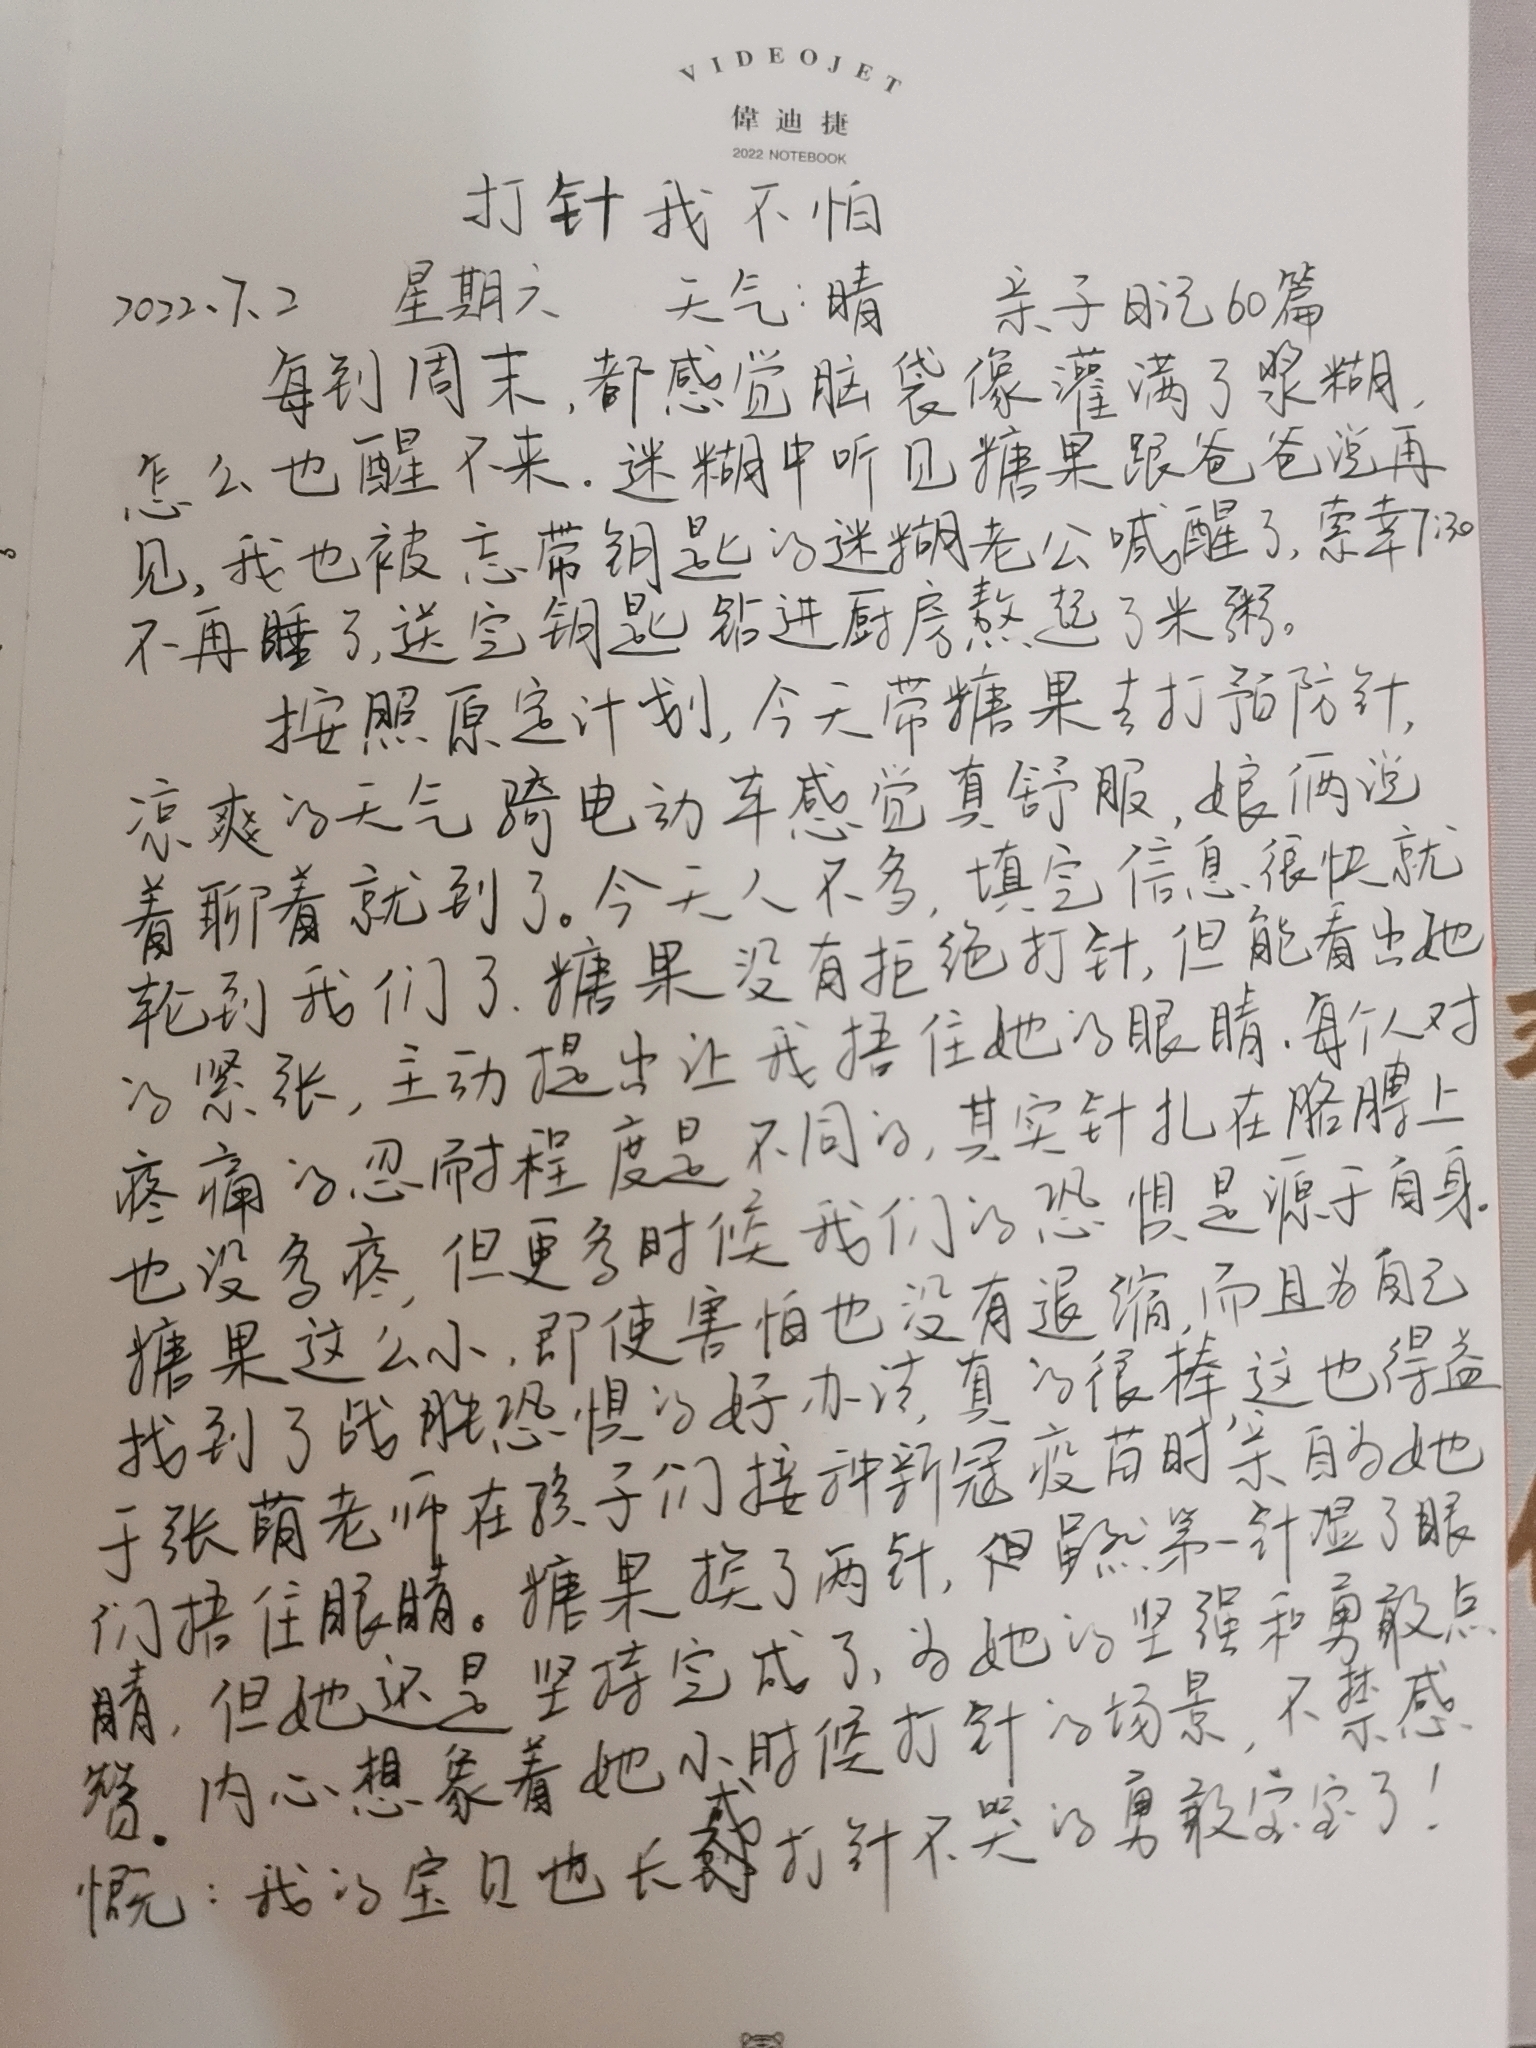 VIDEOJET
偉迪捷
2022 NOTEBOOK
打针我不怕
2022.7.2 星期六 天气:晴 亲子日记60篇
每到周末,都感觉脑袋像灌满了浆糊,
怎么也醒不来.迷糊中听见糖果跟爸爸说再
见,我也被忘带钥匙的迷糊老公喊醒了,索幸7:30
不再睡了,送完钥匙钻进厨房熬起了米粥。
按照原定计划,今天带糖果去打预防针,
凉爽的天气骑电动车感觉真舒服,娘俩说
着聊着就到了。今天人不多,填完信息很快就
轮到我们了.糖果没有拒绝打针,但能看出她
的紧张,主动提出让我捂住她的眼睛.每个人对
疼痛的忍耐程度是不同的,其实针扎在胳膊上
也没多疼,但更多时候我们的恐惧是源于自身.
糖果这么小,即使害怕也没有退缩,而且为自己
找到了战胜恐惧的好办法,真的很棒这也得益
于张萌老师在孩子们接种新冠疫苗时亲自为她
们捂住眼睛。糖果挨了两针,但虽然第一针湿了眼
睛,但她还是坚持完成了,为她的坚强和勇敢点
赞。内心想象着她小时候打针的场景,不禁感
慨:我的宝贝也长成打针不哭的勇敢宝宝了!